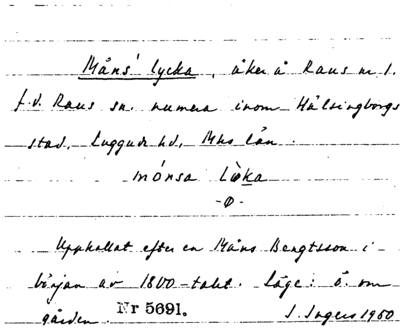 Måns' lycka, åker å Raus nr 1.
f.d. Raus sn. numera inom Hälsingborgs
stad, Luggude hd, Mhs län.
mȯnsa
-o-
Uppkallat efter en Måns Bengtsson i
början av 1800-talet. Läge: ö. om
gården. Nr 5691. I. Ingers 1950